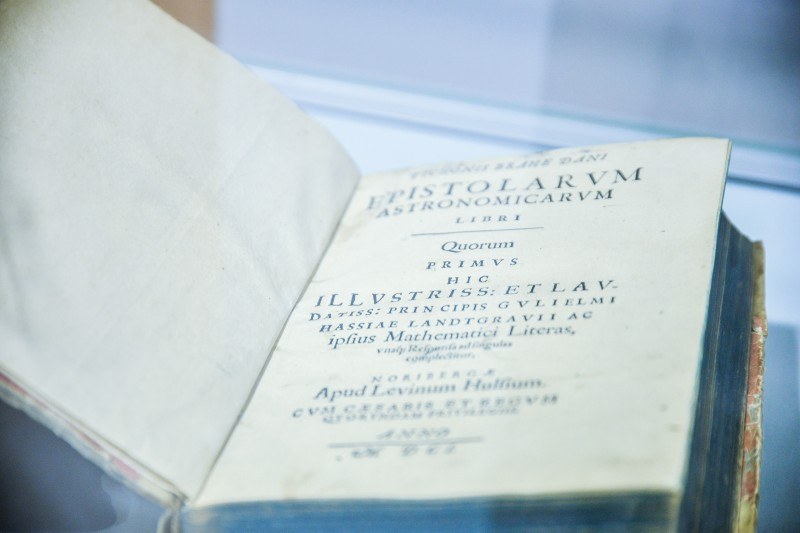 TYCHONIS BRAHE DANI
EPISTOLARVM
ASTRONOMICARVM
LIBRI
Quorum
PRIMVS
HIC
ILLVSTRISS: ET LAV-
DATISS: PRINCIPIS GVLIELMI
HASSIAE LANDTGRAVII AC
ipsius Mathematici Literas,
vnaq; Responsa ad singulas
complectitur.
NORIBERGÆ
Apud Levinum Hulsium.
CVM CÆSARIS ET REGVM
QVORVNDAM PRIVILEGIIS.
ANNO
M DCI.